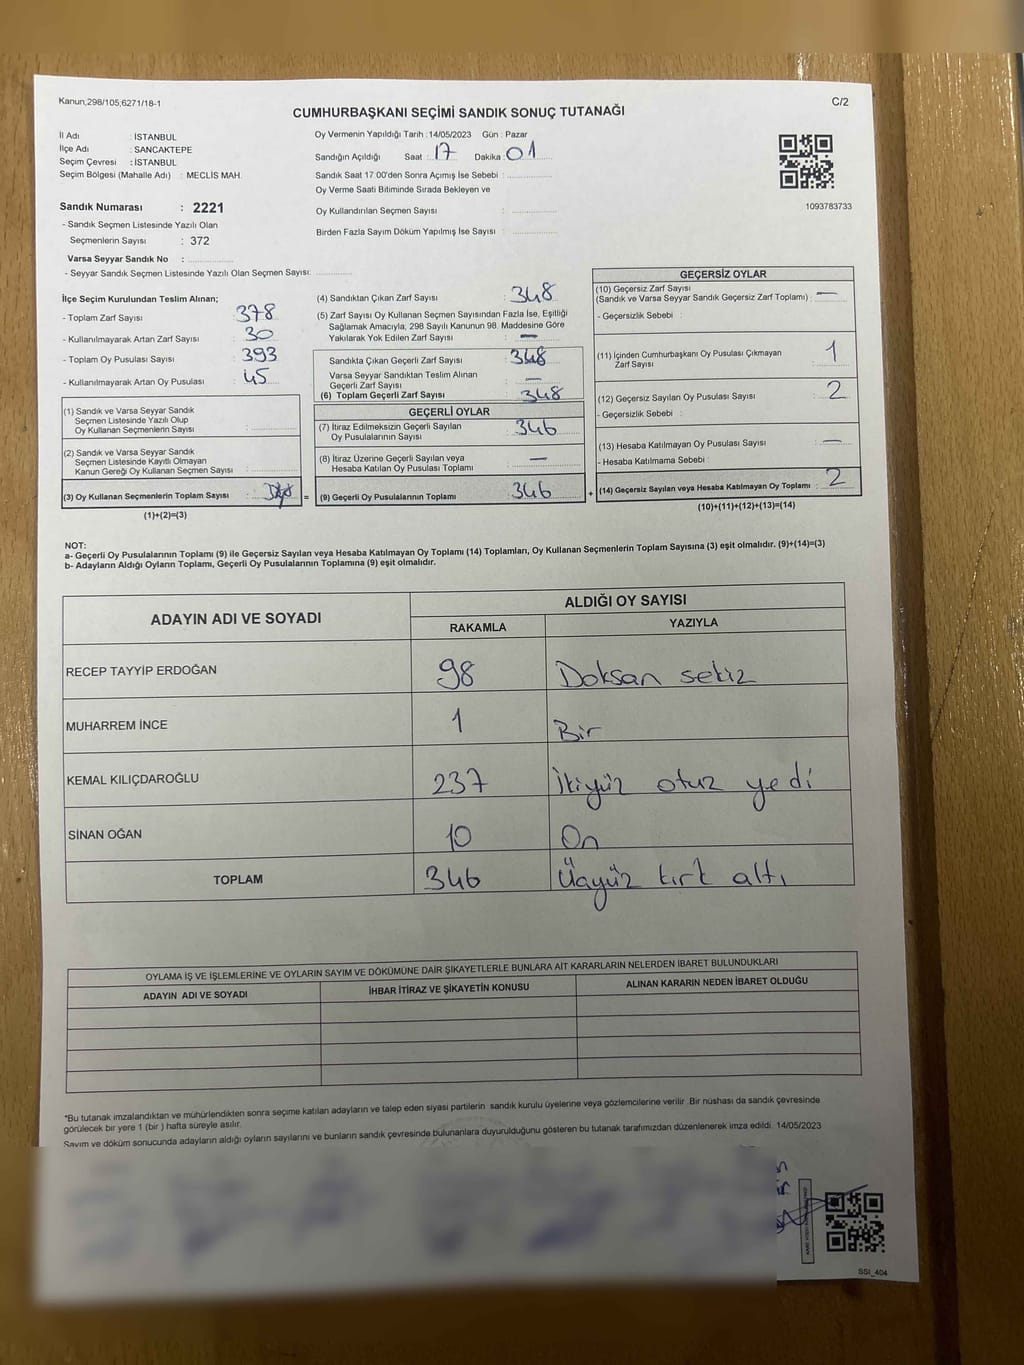 Kanun,298/105,6271/18-1
C/2
CUMHURBAŞKANI SEÇİMİ SANDIK SONUÇ TUTANAĞI
İl Adı : İSTANBUL
İlçe Adı : SANCAKTEPE
Seçim Çevresi : İSTANBUL
Seçim Bölgesi (Mahalle Adı) : MECLİS MAH.
Oy Vermenin Yapıldığı Tarih :14/05/2023 Gün : Pazar
Sandığın Açıldığı Saat : 17 Dakika : 01
Sandık Saat 17:00'den Sonra Açımış İse Sebebi :
Oy Verme Saati Bitiminde Sırada Bekleyen ve
Oy Kullandırılan Seçmen Sayısı :
Birden Fazla Sayım Döküm Yapılmış İse Sayısı :
1093783733
Sandık Numarası : 2221
- Sandık Seçmen Listesinde Yazılı Olan
Seçmenlerin Sayısı : 372
Varsa Seyyar Sandık No :
- Seyyar Sandık Seçmen Listesinde Yazılı Olan Seçmen Sayısı:
İlçe Seçim Kurulundan Teslim Alınan;
- Toplam Zarf Sayısı : 378
- Kullanılmayarak Artan Zarf Sayısı : 30
- Toplam Oy Pusulası Sayısı : 393
- Kullanılmayarak Artan Oy Pusulası : 45
(1) Sandık ve Varsa Seyyar Sandık
Seçmen Listesinde Yazılı Olup
Oy Kullanan Seçmenlerin Sayısı :
(2) Sandık ve Varsa Seyyar Sandık
Seçmen Listesinde Kayıtlı Olmayan
Kanun Gereği Oy Kullanan Seçmen Sayısı :
(3) Oy Kullanan Seçmenlerin Toplam Sayısı : =
(1)+(2)=(3)
(4) Sandıktan Çıkan Zarf Sayısı : 348
(5) Zarf Sayısı Oy Kullanan Seçmen Sayısından Fazla İse, Eşitliği
Sağlamak Amacıyla, 298 Sayılı Kanunun 98. Maddesine Göre
Yakılarak Yok Edilen Zarf Sayısı : —
Sandıkta Çıkan Geçerli Zarf Sayısı : 348
Varsa Seyyar Sandıktan Teslim Alınan
Geçerli Zarf Sayısı : —
(6) Toplam Geçerli Zarf Sayısı : 348
GEÇERLİ OYLAR
(7) İtiraz Edilmeksizin Geçerli Sayılan
Oy Pusulalarının Sayısı : 346
(8) İtiraz Üzerine Geçerli Sayılan veya
Hesaba Katılan Oy Pusulası Toplamı : —
(9) Geçerli Oy Pusulalarının Toplamı : 346 +
GEÇERSİZ OYLAR
(10) Geçersiz Zarf Sayısı
(Sandık ve Varsa Seyyar Sandık Geçersiz Zarf Toplamı) : —
- Geçersizlik Sebebi :
(11) İçinden Cumhurbaşkanı Oy Pusulası Çıkmayan
Zarf Sayısı : 1
(12) Geçersiz Sayılan Oy Pusulası Sayısı : 2
- Geçersizlik Sebebi :
(13) Hesaba Katılmayan Oy Pusulası Sayısı : —
- Hesaba Katılmama Sebebi :
(14) Geçersiz Sayılan veya Hesaba Katılmayan Oy Toplamı : 2
(10)+(11)+(12)+(13)=(14)
NOT:
a- Geçerli Oy Pusulalarının Toplamı (9) ile Geçersiz Sayılan veya Hesaba Katılmayan Oy Toplamı (14) Toplamları, Oy Kullanan Seçmenlerin Toplam Sayısına (3) eşit olmalıdır. (9)+(14)=(3)
b- Adayların Aldığı Oyların Toplamı, Geçerli Oy Pusulalarının Toplamına (9) eşit olmalıdır.
ADAYIN ADI VE SOYADI
ALDIĞI OY SAYISI
RAKAMLA YAZIYLA
RECEP TAYYİP ERDOĞAN 98 Doksan sekiz
MUHARREM İNCE 1 Bir
KEMAL KILIÇDAROĞLU 237 İkiyüz otuz yedi
SİNAN OĞAN 10 On
TOPLAM 346 Üçyüz kırk altı
OYLAMA İŞ VE İŞLEMLERİNE VE OYLARIN SAYIM VE DÖKÜMÜNE DAİR ŞİKAYETLERLE BUNLARA AİT KARARLARIN NELERDEN İBARET BULUNDUKLARI
ADAYIN ADI VE SOYADI İHBAR İTİRAZ VE ŞİKAYETİN KONUSU ALINAN KARARIN NEDEN İBARET OLDUĞU
*Bu tutanak imzalandıktan ve mühürlendikten sonra seçime katılan adayların ve talep eden siyasi partilerin sandık kurulu üyelerine veya gözlemcilerine verilir. Bir nüshası da sandık çevresinde
görülecek bir yere 1 (bir ) hafta süreyle asılır.
Sayım ve döküm sonucunda adayların aldığı oyların sayılarını ve bunların sandık çevresinde bulunanlara duyurulduğunu gösteren bu tutanak tarafımızdan düzenlenerek imza edildi. 14/05/2023
SSI_404